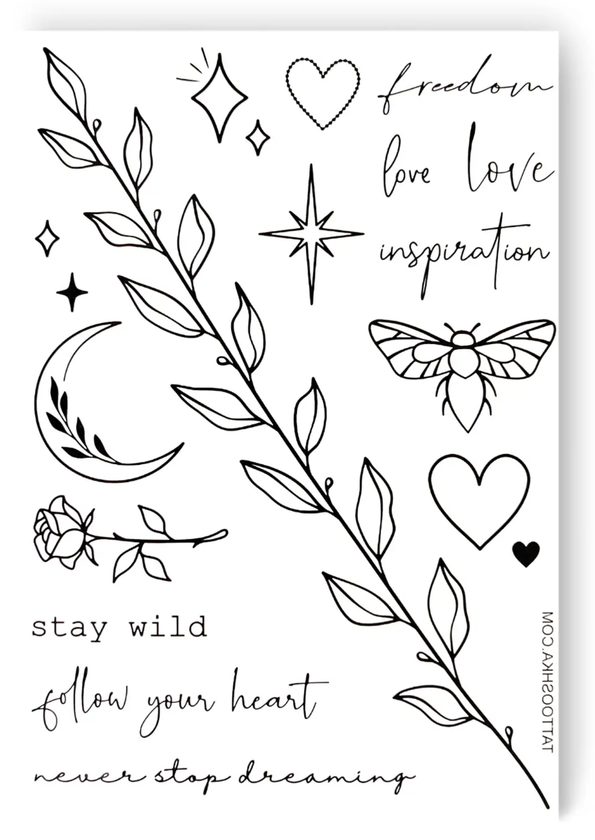 freedom
love love
inspiration
stay wild
follow your heart
never stop dreaming
TATTOOSHKA.COM